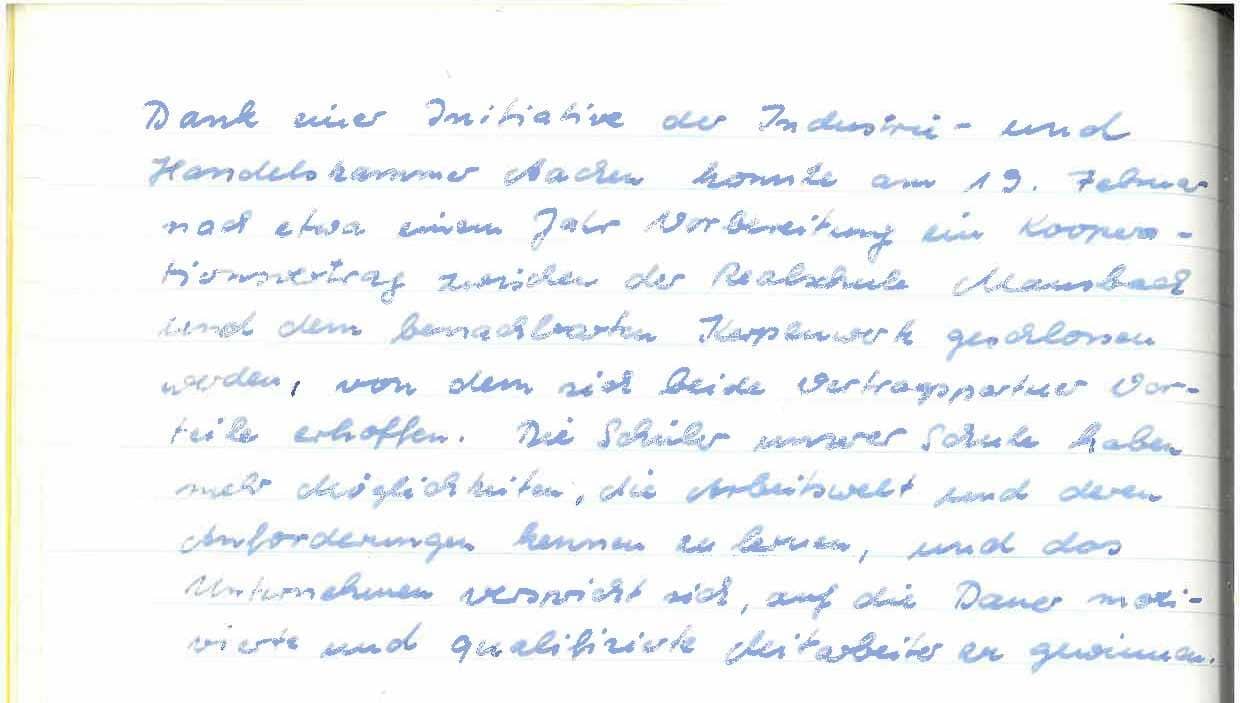 Dank einer Initiative der Industrie- und
Handelskammer Aachen konnte am 19. Februar
nach etwa einem Jahr Vorbereitung ein Koopera-
tionsvertrag zwischen der Realschule Mausbach
und dem benachbarten Kerpenwerk geschlossen
werden, von dem sich beide Vertragspartner Vor-
teile erhoffen. Die Schüler unserer Schule haben
mehr Möglichkeiten, die Arbeitswelt und deren
Anforderungen kennen zu lernen, und das
Unternehmen verspricht sich, auf die Dauer moti-
vierte und qualifizierte Mitarbeiter zu gewinnen.